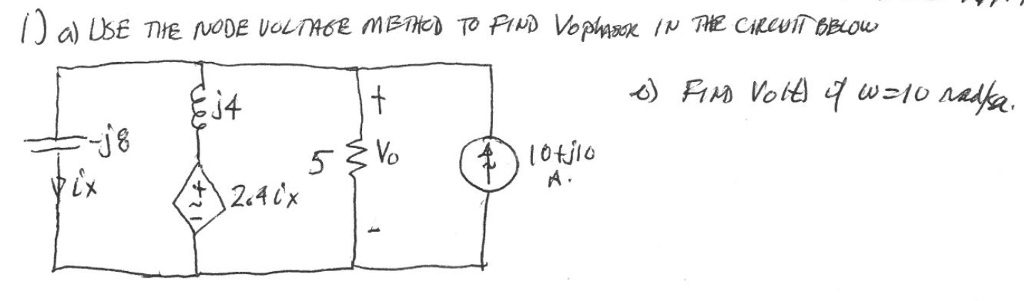 1) a) USE THE NODE VOLTAGE METHOD TO FIND Vophasor IN THE CIRCUIT BELOW
b) FIND Vo(t) if w=10 rad/sec.
j4
+
-j8
5
Vo
10+j10
A.
ix
+
~
-
2.4ix
-